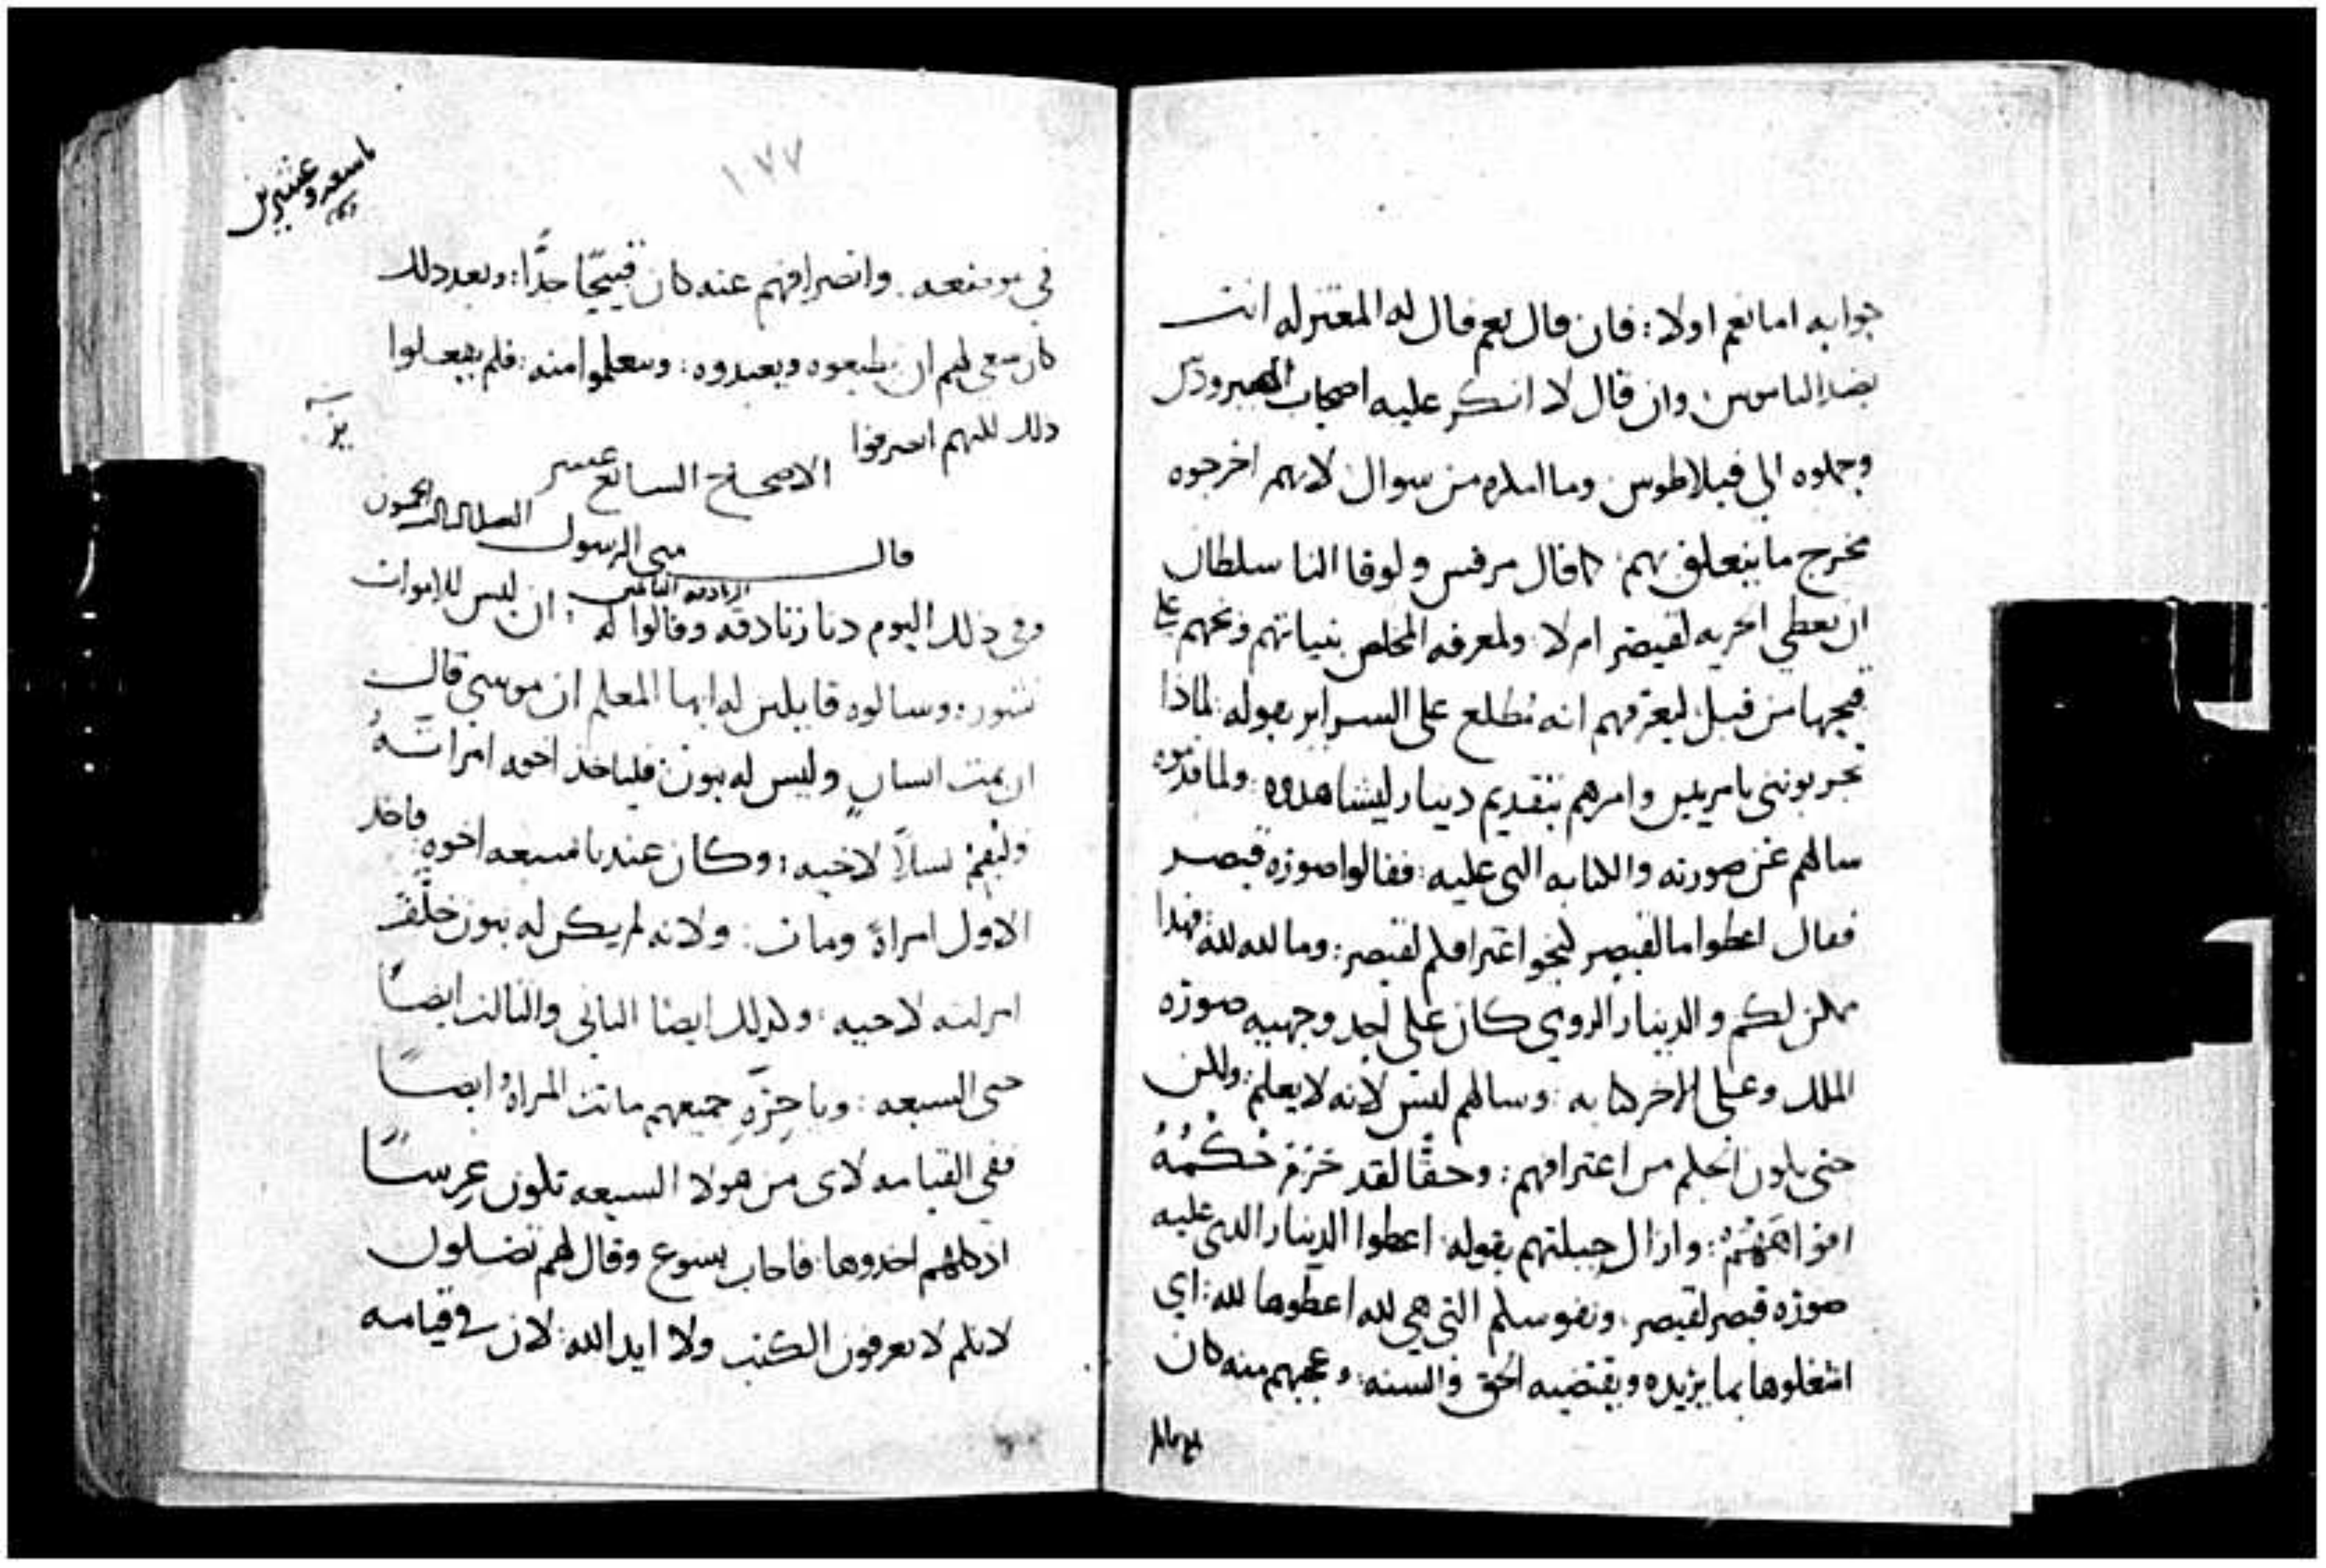 جوابه اما نعم او لا : فان قال نعم قال له المعتزله انت
بضد الناموس وان قال لا انكر عليه اصحاب
وحملوه الى فيلاطوس وما املره من سوال لانهم اخرجوه
مخرج ما يتعلق بهم : كما قال مرقس ولوقا النا سلطان
ان نعطي الجزيه لقيصر ام لا ولمعرفه المخلص بنياتهم وبخهم على
قبحها من قبل ليعرفهم انه مطلع على السراير بقوله لماذا
تجربونني يا مرايين وامرهم بتقديم دينار ليشاهدوه : ولما قدموه
سالهم عن صورته والكتابه التي عليه : فقالوا صوره قيصر
فقال اعطوا ما لقيصر اعترافكم لقيصر : وما لله لله فهذا
ممكن لكم والدينار الرومي كان على احد وجهيه صوره
الملك وعلى الاخر كتابه : وسالهم ليس لانه لا يعلم : ولكن
حتى يكون الحكم من اعترافهم : وحقًا لقد خزم حُكْمُهُ
افواههم : وازال حيلتهم بقوله اعطوا الدينار الذي عليه
صوره قيصر لقيصر . ونفوسكم التي هي لله اعطوها لله : اي
اشغلوها بما يريده ويقتضيه الحق والسنه : وعجبهم منه كان
١٧٧
تاسعه وعشرين
في موضعه . وانصرافهم عنه كان قبيحًا جدًّا : وبعد ذلك
كان ينبغي لهم ان يطيعوه ويعبدوه : ويتعلموا منه : فلم يفعلوا
ذلك لكنهم انصرفوا
الاصحاح السابع عشر
قال متى الرسول الفصل الثالث
وفي ذلك اليوم دنا زنادقه وقالوا له : ان ليس للاموات
نشور : وسالوه قايلين له ايها المعلم ان موسى قال
ان يمت انسان وليس له بنون فلياخذ اخوه امراته
وليقم نسلاً لاخيه : وكان عندنا سبعه اخوه فاخذ
الاول امراة ومات : ولانه لم يكن له بنون خلّف
امراته لاخيه : وكذلك ايضا الثاني والثالث ايضًا
حتى السبعه : وباخِرَةِ جميعهم ماتت المراة ايضًا
ففي القيامه لاي من هولا السبعه تكون عِرسًا
اذ كلهم اخذوها : فاجاب يسوع وقال لهم تضلون
لانكم لا تعرفون الكتب ولا ايد الله : لان في قيامه